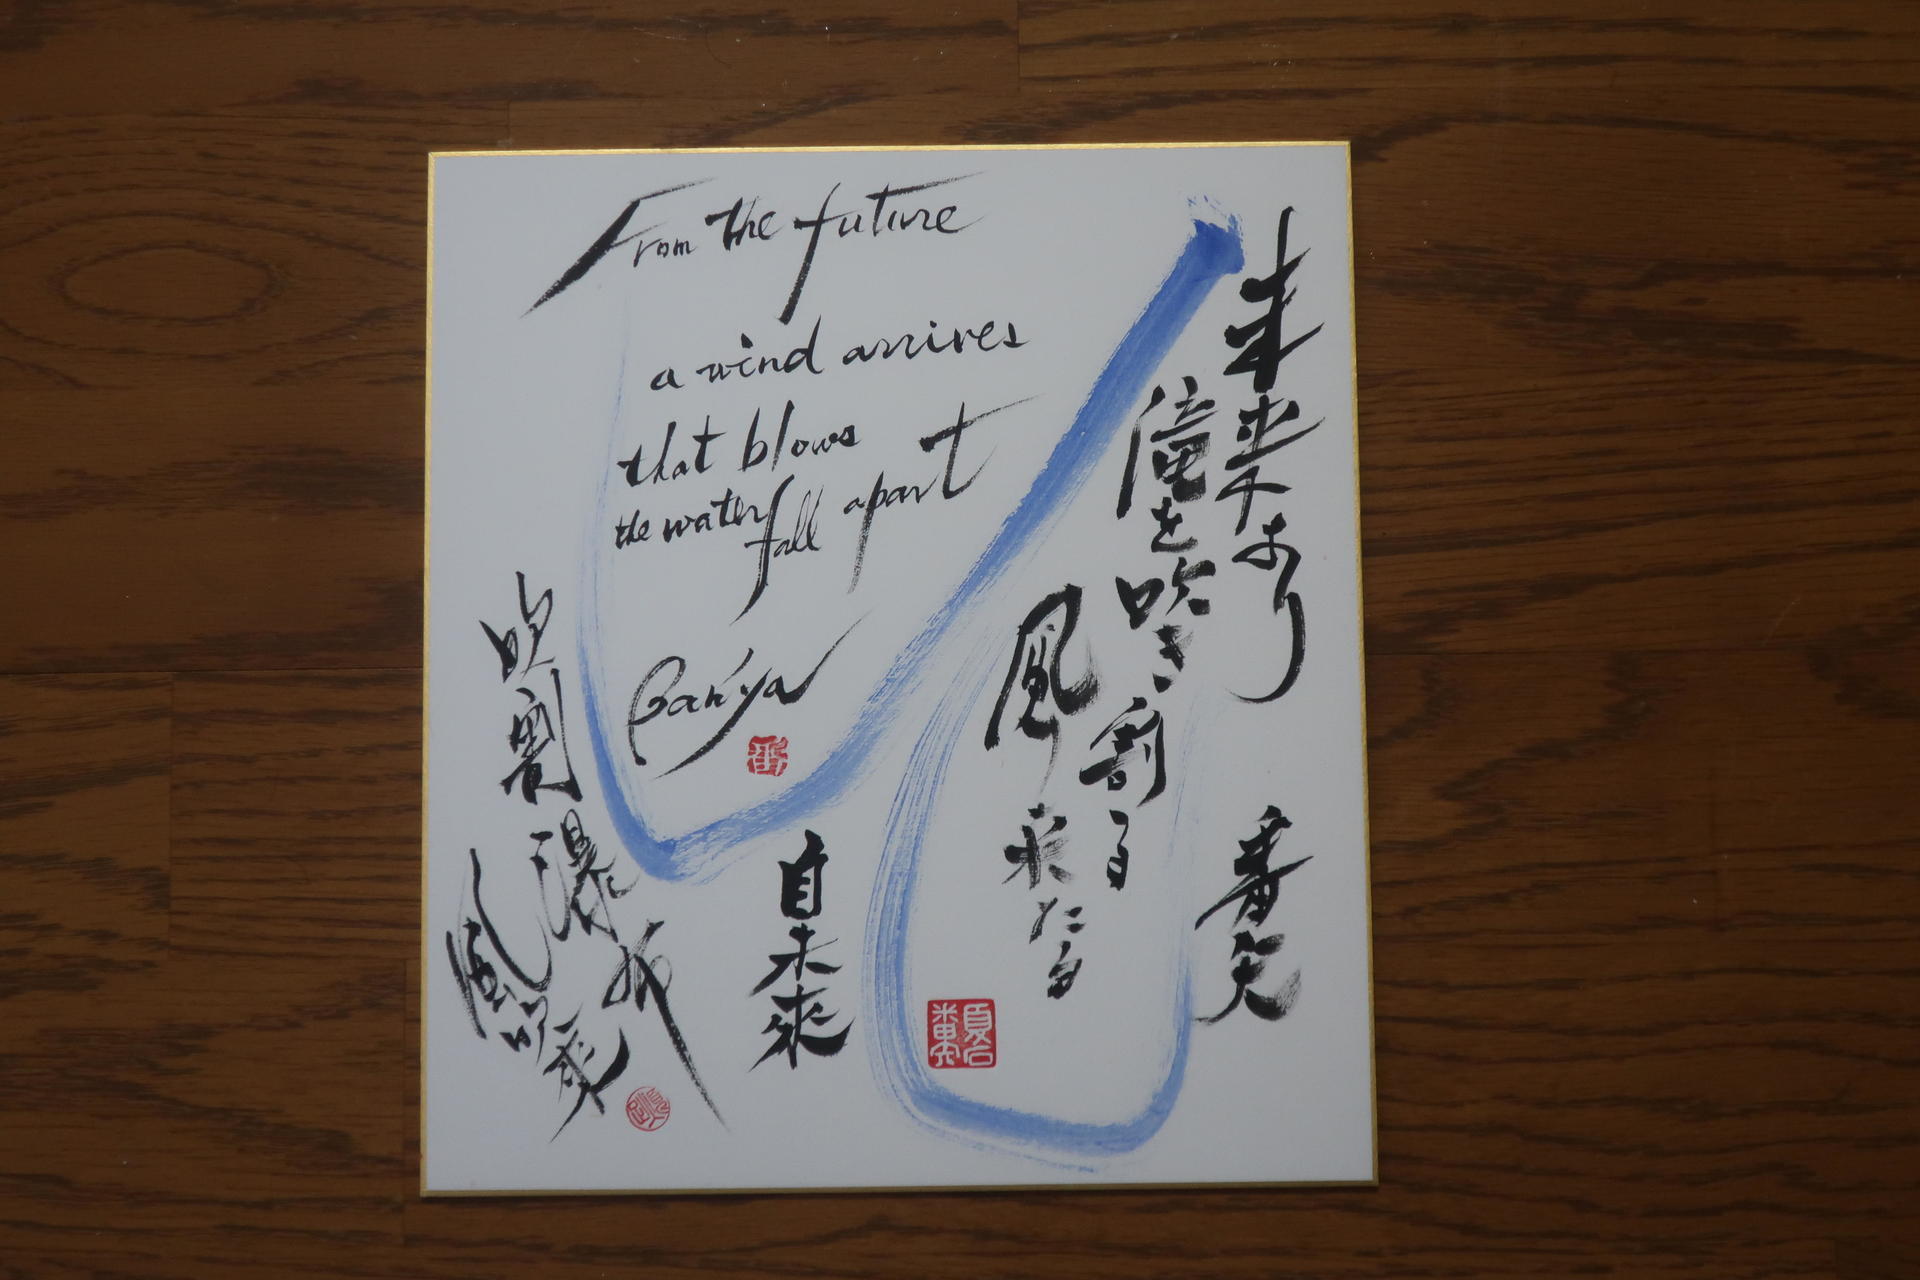 From the future
a wind arrives
that blows
the waterfall apart
Ban'ya
番
未来より
瀧を吹き割る
風来たる
番矢
夏石番矢
自未來
吹割瀑布
風